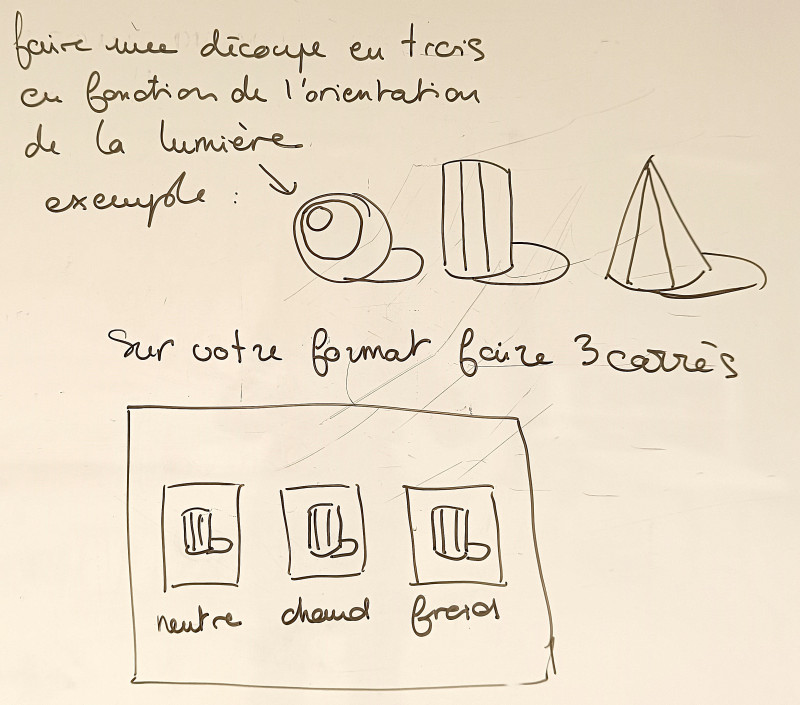 faire une découpe en trois
en fonction de l'orientation
de la lumière
exemple :
Sur votre format faire 3 carrés
neutre chaud froid